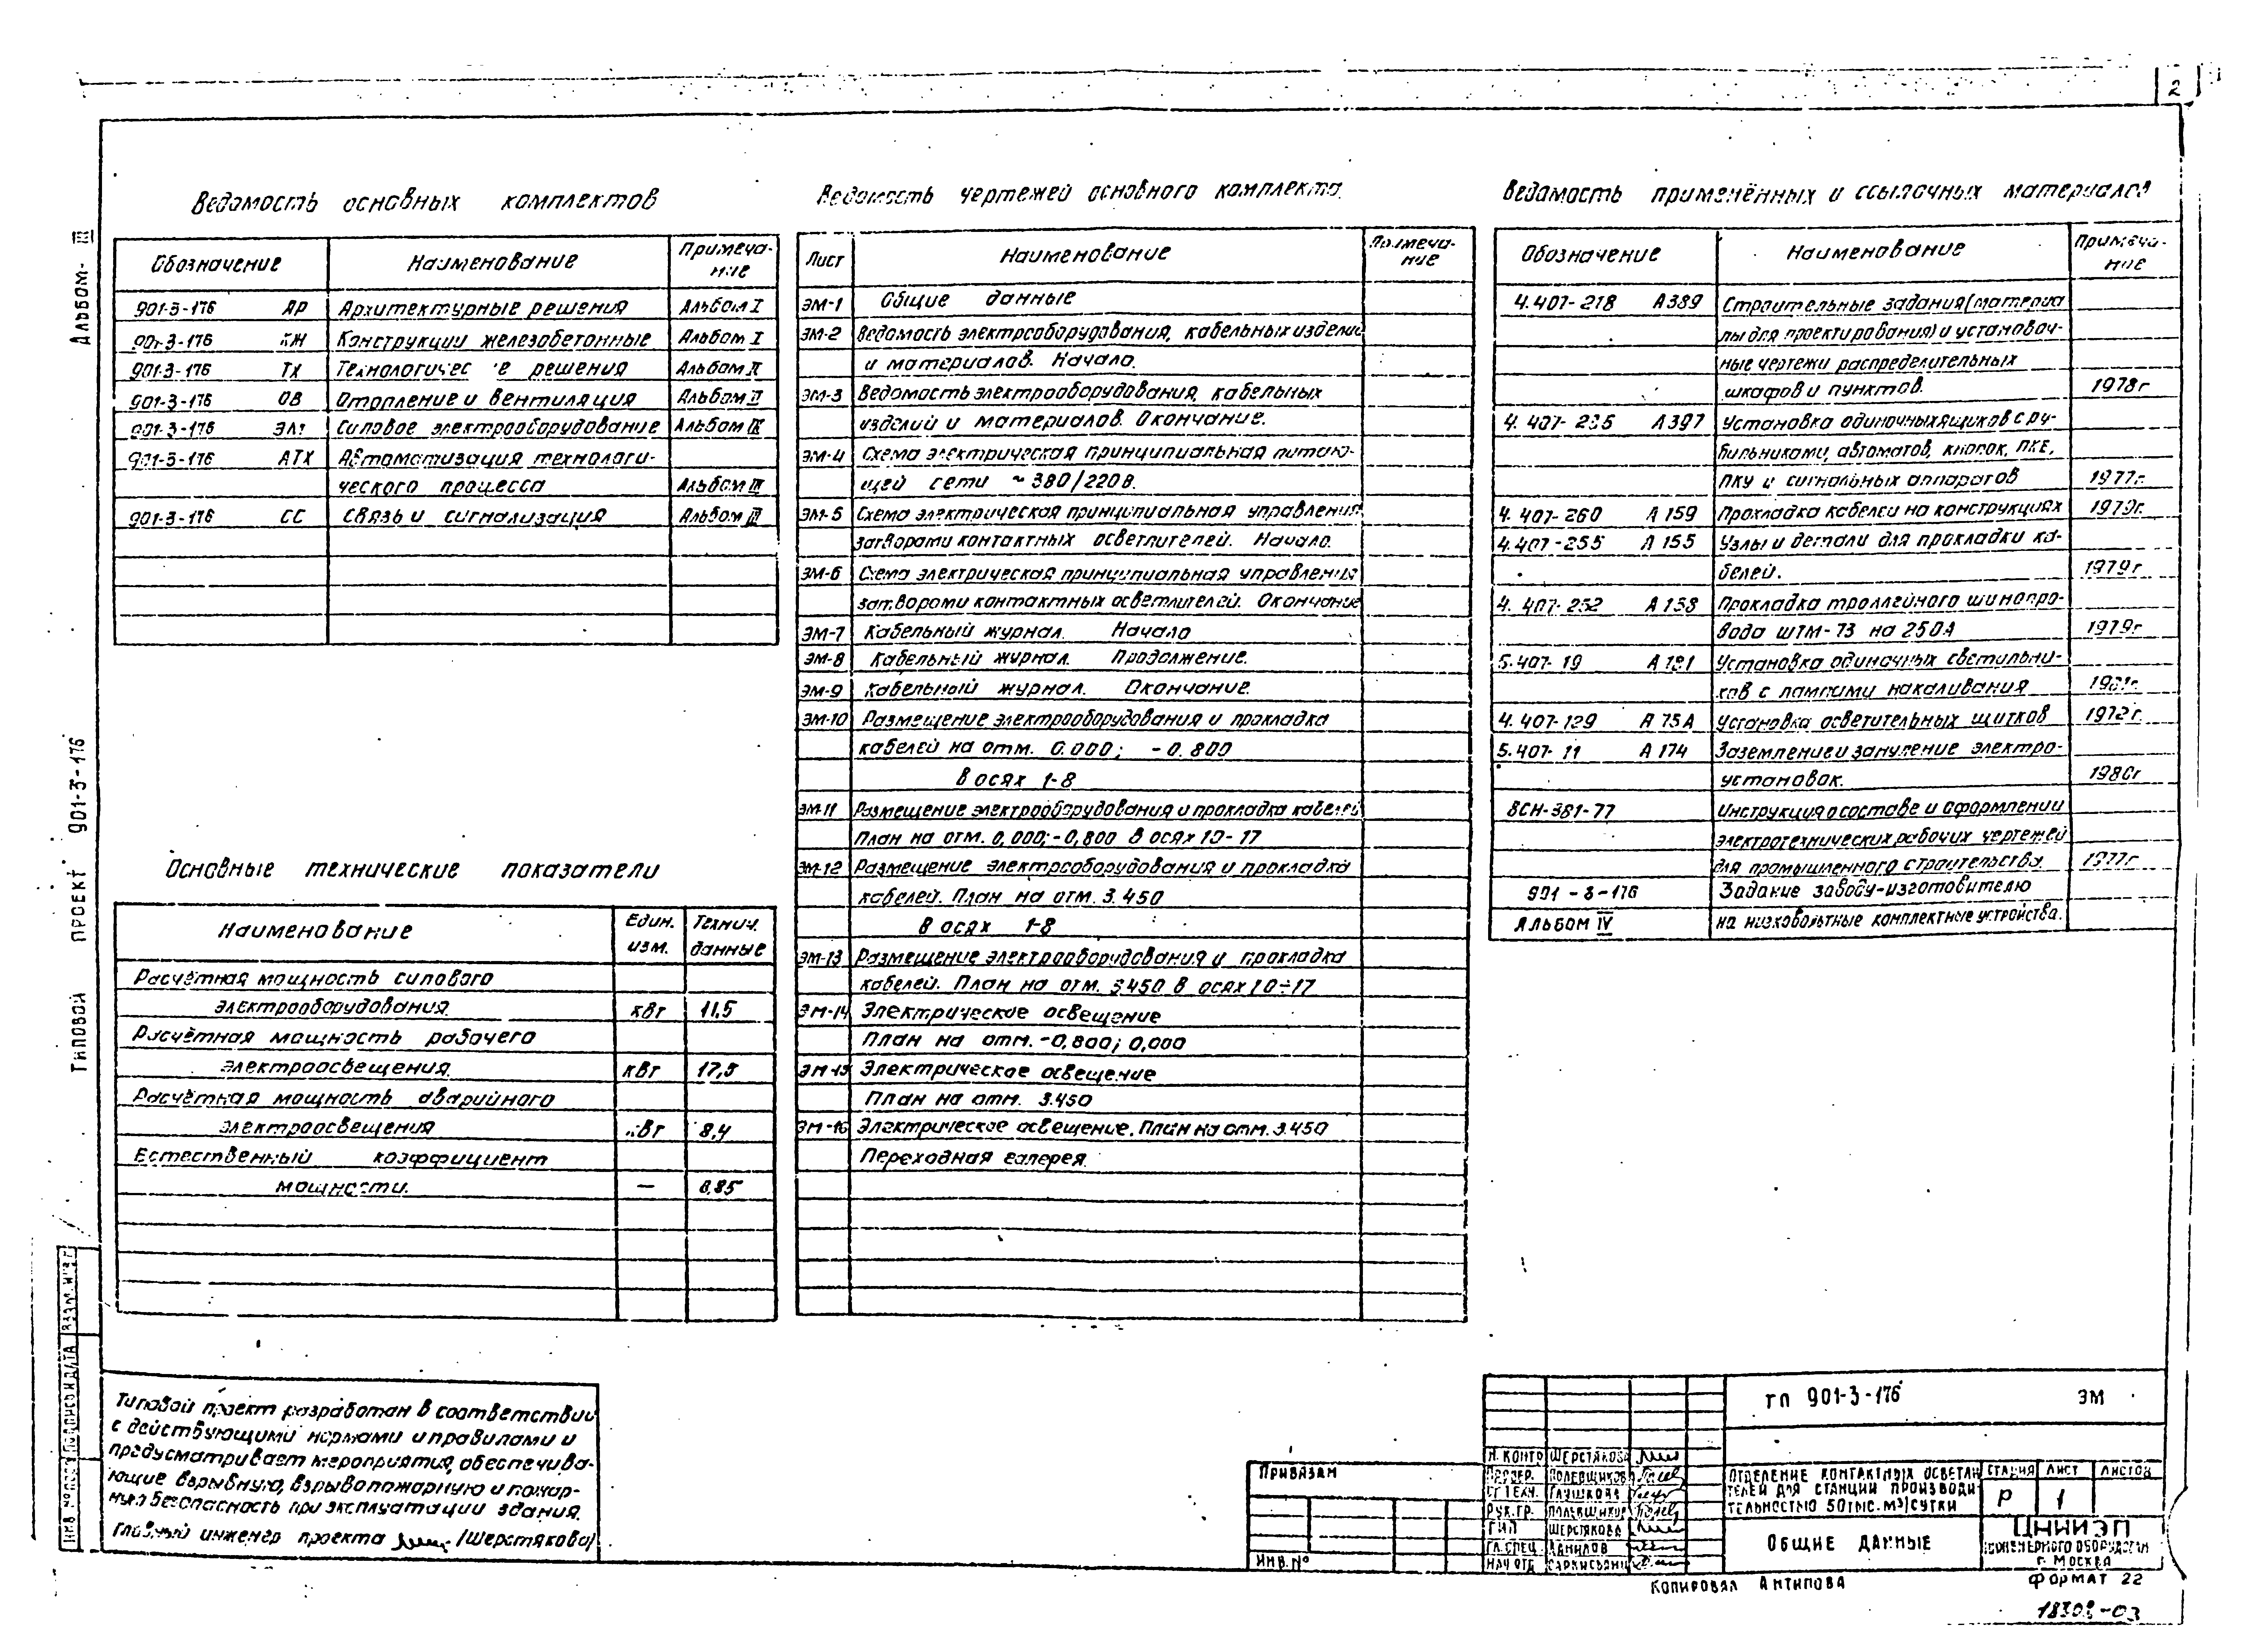 2
Альбом- III
Типовой проект 901-3-176
Ведомость основных комплектов
Обозначение Наименование Примеча-
ние
901-3-176 АР Архитектурные решения Альбом I
901-3-176 КЖ Конструкции железобетонные Альбом I
901-3-176 ТХ решения Альбом II
901-3-176 ОВ Отопление и вентиляция Альбом II
901-3-176 Силовое электрооборудование Альбом III
901-3-176 АТХ Автоматизация технологи-
ческого процесса Альбом III
901-3-176 СС Связь и сигнализация Альбом III
Основные технические показатели
Наименование Един. Технич.
изм. данные
Расчётная мощность силового
электрооборудования. кВт 11,5
Расчётная мощность рабочего
электроосвещения. кВт 17,5
Расчётная мощность аварийного
электроосвещения кВт 8,4
Естественный коэффициент
мощности. — 0.85
Типовой проект разработан в соответствии
с действующими нормами и правилами и
предусматривает мероприятия, обеспечива-
ющие взрывную, взрывопожарную и пожар-
ную безопасность при эксплуатации здания.
Главный инженер проекта /Шерстякова/
Ведомость чертежей основного комплекта.
Лист Наименование Примеча-
ние
ЭМ-1 Общие данные
ЭМ-2 Ведомость электрооборудования, кабельных изделий
и материалов. Начало.
ЭМ-3 Ведомость электрооборудования, кабельных
изделий и материалов. Окончание.
ЭМ-4 Схема электрическая принципиальная питаю-
щей сети ~ 380/220В.
ЭМ-5 Схема электрическая принципиальная управления
затворами контактных осветлителей. Начало.
ЭМ-6 Схема электрическая принципиальная управления
затворами контактных осветлителей. Окончание
ЭМ-7 Кабельный журнал. Начало
ЭМ-8 Кабельный журнал. Продолжение.
ЭМ-9 Кабельный журнал. Окончание.
ЭМ-10 Размещение электрооборудования и прокладка
кабелей на отм. 0.000; -0.800
в осях 1-8
ЭМ-11 Размещение электрооборудования и прокладка кабелей
План на отм. 0,000; -0,800 в осях 10-17
ЭМ-12 Размещение электрооборудования и прокладка
кабелей. План на отм. 3.450
в осях 1-8
ЭМ-13 Размещение электрооборудования и прокладка
кабелей. План на отм. 3.450 в осях 10÷17
ЭМ-14 Электрическое освещение
План на отм. -0,800; 0,000
ЭМ-15 Электрическое освещение
План на отм. 3.450
ЭМ-16 Электрическое освещение. План на отм. 3.450
Переходная галерея.
Ведомость применённых и ссылочных материалов
Обозначение Наименование Примеча-
ние
4.407-218 А389 Строительные задания (материа
лы для проектирования) и установоч-
ные чертежи распределительных
шкафов и пунктов. 1978г
4.407-235 А397 Установка одиночных ящиков с ру-
бильниками, автоматов, кнопок, ПКЕ,
ПКУ и сигнальных аппаратов 1977г.
4.407-260 А159 Прокладка кабелей на конструкциях 1979г.
4.407-255 А155 Узлы и детали для прокладки ка-
белей. 1979г
4.407-252 А158 Прокладка троллейного шинопро-
вода ШТМ-73 на 250А 1979г
5.407-19 Установка одиночных светильни-
ков с лампами накаливания 1981г.
4.407-129 А75А Установка осветительных щитков 1972г.
5.407-11 А174 Заземление и зануление электро-
установок. 1980г
ВСН-381-77 Инструкция о составе и оформлении
электротехнических рабочих чертежей
для промышленного строительства. 1977г
901-3-176 Задание заводу-изготовителю
Альбом IV на низковольтные комплектные устройства.
Привязан
Инв. №
ТП 901-3-176 ЭМ
Н. контр Шерстякова
Провер. Полевщикова
Ст техн. Глушкова
Рук. гр. Полевщиков
ГИП Шерстякова
Гл. спец Данилов
Нач отд
Отделение контактных осветли
телей для станции производи
тельностью 50 тыс. м3/сутки
Стадия Лист Листов
Р 1
Общие данные
ЦНИИЭП
инженерного оборудован
г. Москва
Копировал Антипова
Формат 22
18308-03